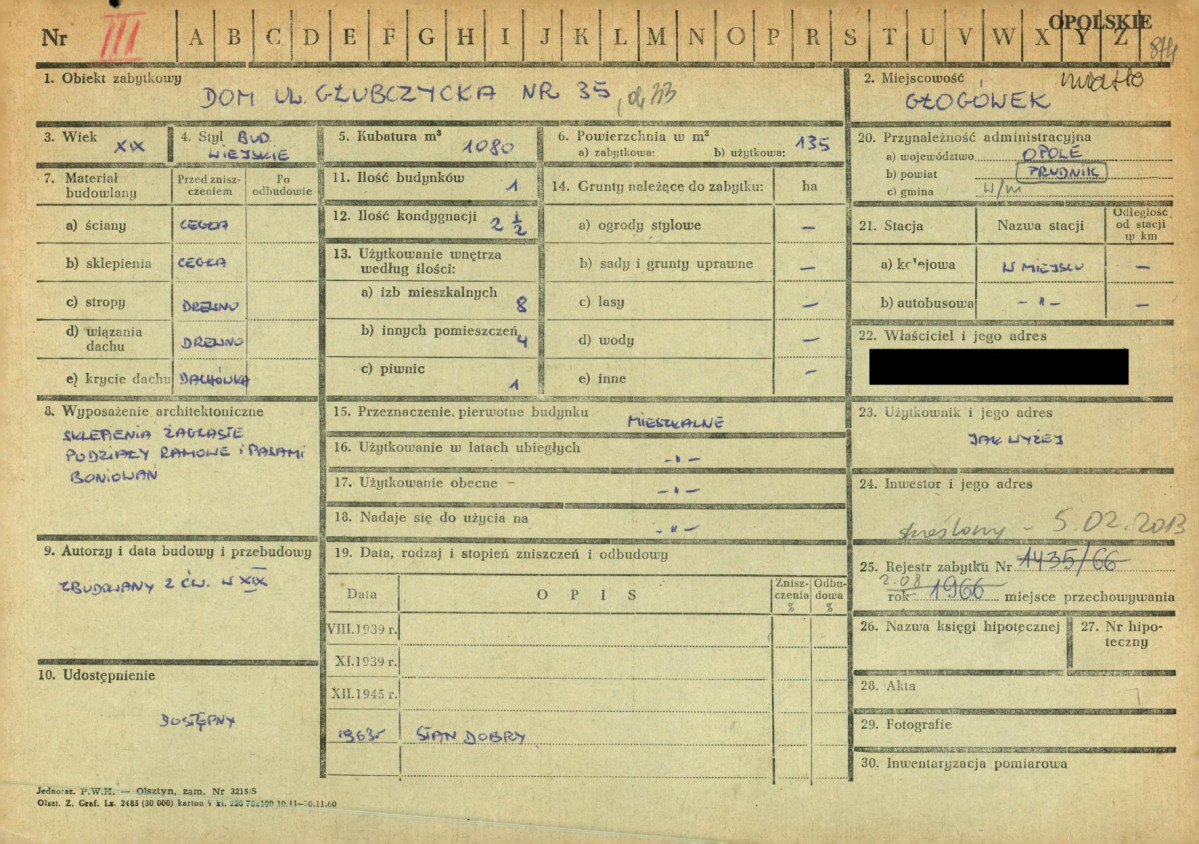 OPOLSKIE
Nr III A B C D E F G H I J K L M N O P R S T U V W X Y Z
874
1. Obiekt zabytkowy
DOM UL. GŁUBCZYCKA NR 35
2. Miejscowość miasto
GŁOGÓWEK
3. Wiek XIX
4. Styl BUD.
WIEJSKIE
5. Kubatura m³ 1080
6. Powierzchnia w m²
a) zabytkowa: b) użytkowa: 135
7. Materiał budowlany
Przed zniszczeniem
Po odbudowie
a) ściany CEGŁA
b) sklepienia CEGŁA
c) stropy DREWNO
d) wiązania dachu DREWNO
e) krycie dachu DACHÓWKA
8. Wyposażenie architektoniczne
SKLEPIENIA ŻAGLASTE
PODZIAŁY RAMOWE I PASAMI
BONIOWAŃ
9. Autorzy i data budowy i przebudowy
ZBUDOWANY 2 ĆW. W XIX
10. Udostępnienie
DOSTĘPNY
11. Ilość budynków 1
12. Ilość kondygnacji 2 ½
13. Użytkowanie wnętrza
według ilości:
a) izb mieszkalnych 8
b) innych pomieszczeń 4
c) piwnic 1
14. Grunty należące do zabytku: ha
a) ogrody stylowe –
b) sady i grunty uprawne –
c) lasy –
d) wody –
e) inne –
15. Przeznaczenie pierwotne budynku MIESZKALNE
16. Użytkowanie w latach ubiegłych -"-
17. Użytkowanie obecne -"-
18. Nadaje się do użycia na -"-
19. Data, rodzaj i stopień zniszczeń i odbudowy
Data OPIS Zniszczenia % Odbudowa %
VIII.1939 r.
XI.1939 r.
XII.1945 r.
1963r STAN DOBRY
20. Przynależność administracyjna
a) województwo OPOLE
b) powiat PRUDNIK
c) gmina w/m
21. Stacja Nazwa stacji Odległość od stacji w km
a) kolejowa W MIEJSCU –
b) autobusowa -"- –
22. Właściciel i jego adres
23. Użytkownik i jego adres
JAK WYŻEJ
24. Inwestor i jego adres
skreślony - 5.02.2013
25. Rejestr zabytku Nr 1435/66
2.08
rok 1966 miejsce przechowywania
26. Nazwa księgi hipotecznej
27. Nr hipoteczny
28. Akta
29. Fotografie
30. Inwentaryzacja pomiarowa
Jednoraz. P.W.H. — Olsztyn, zam. Nr 3215/S
Olszt. Z. Graf. Lz. 2485 (30 000) karton V kl.